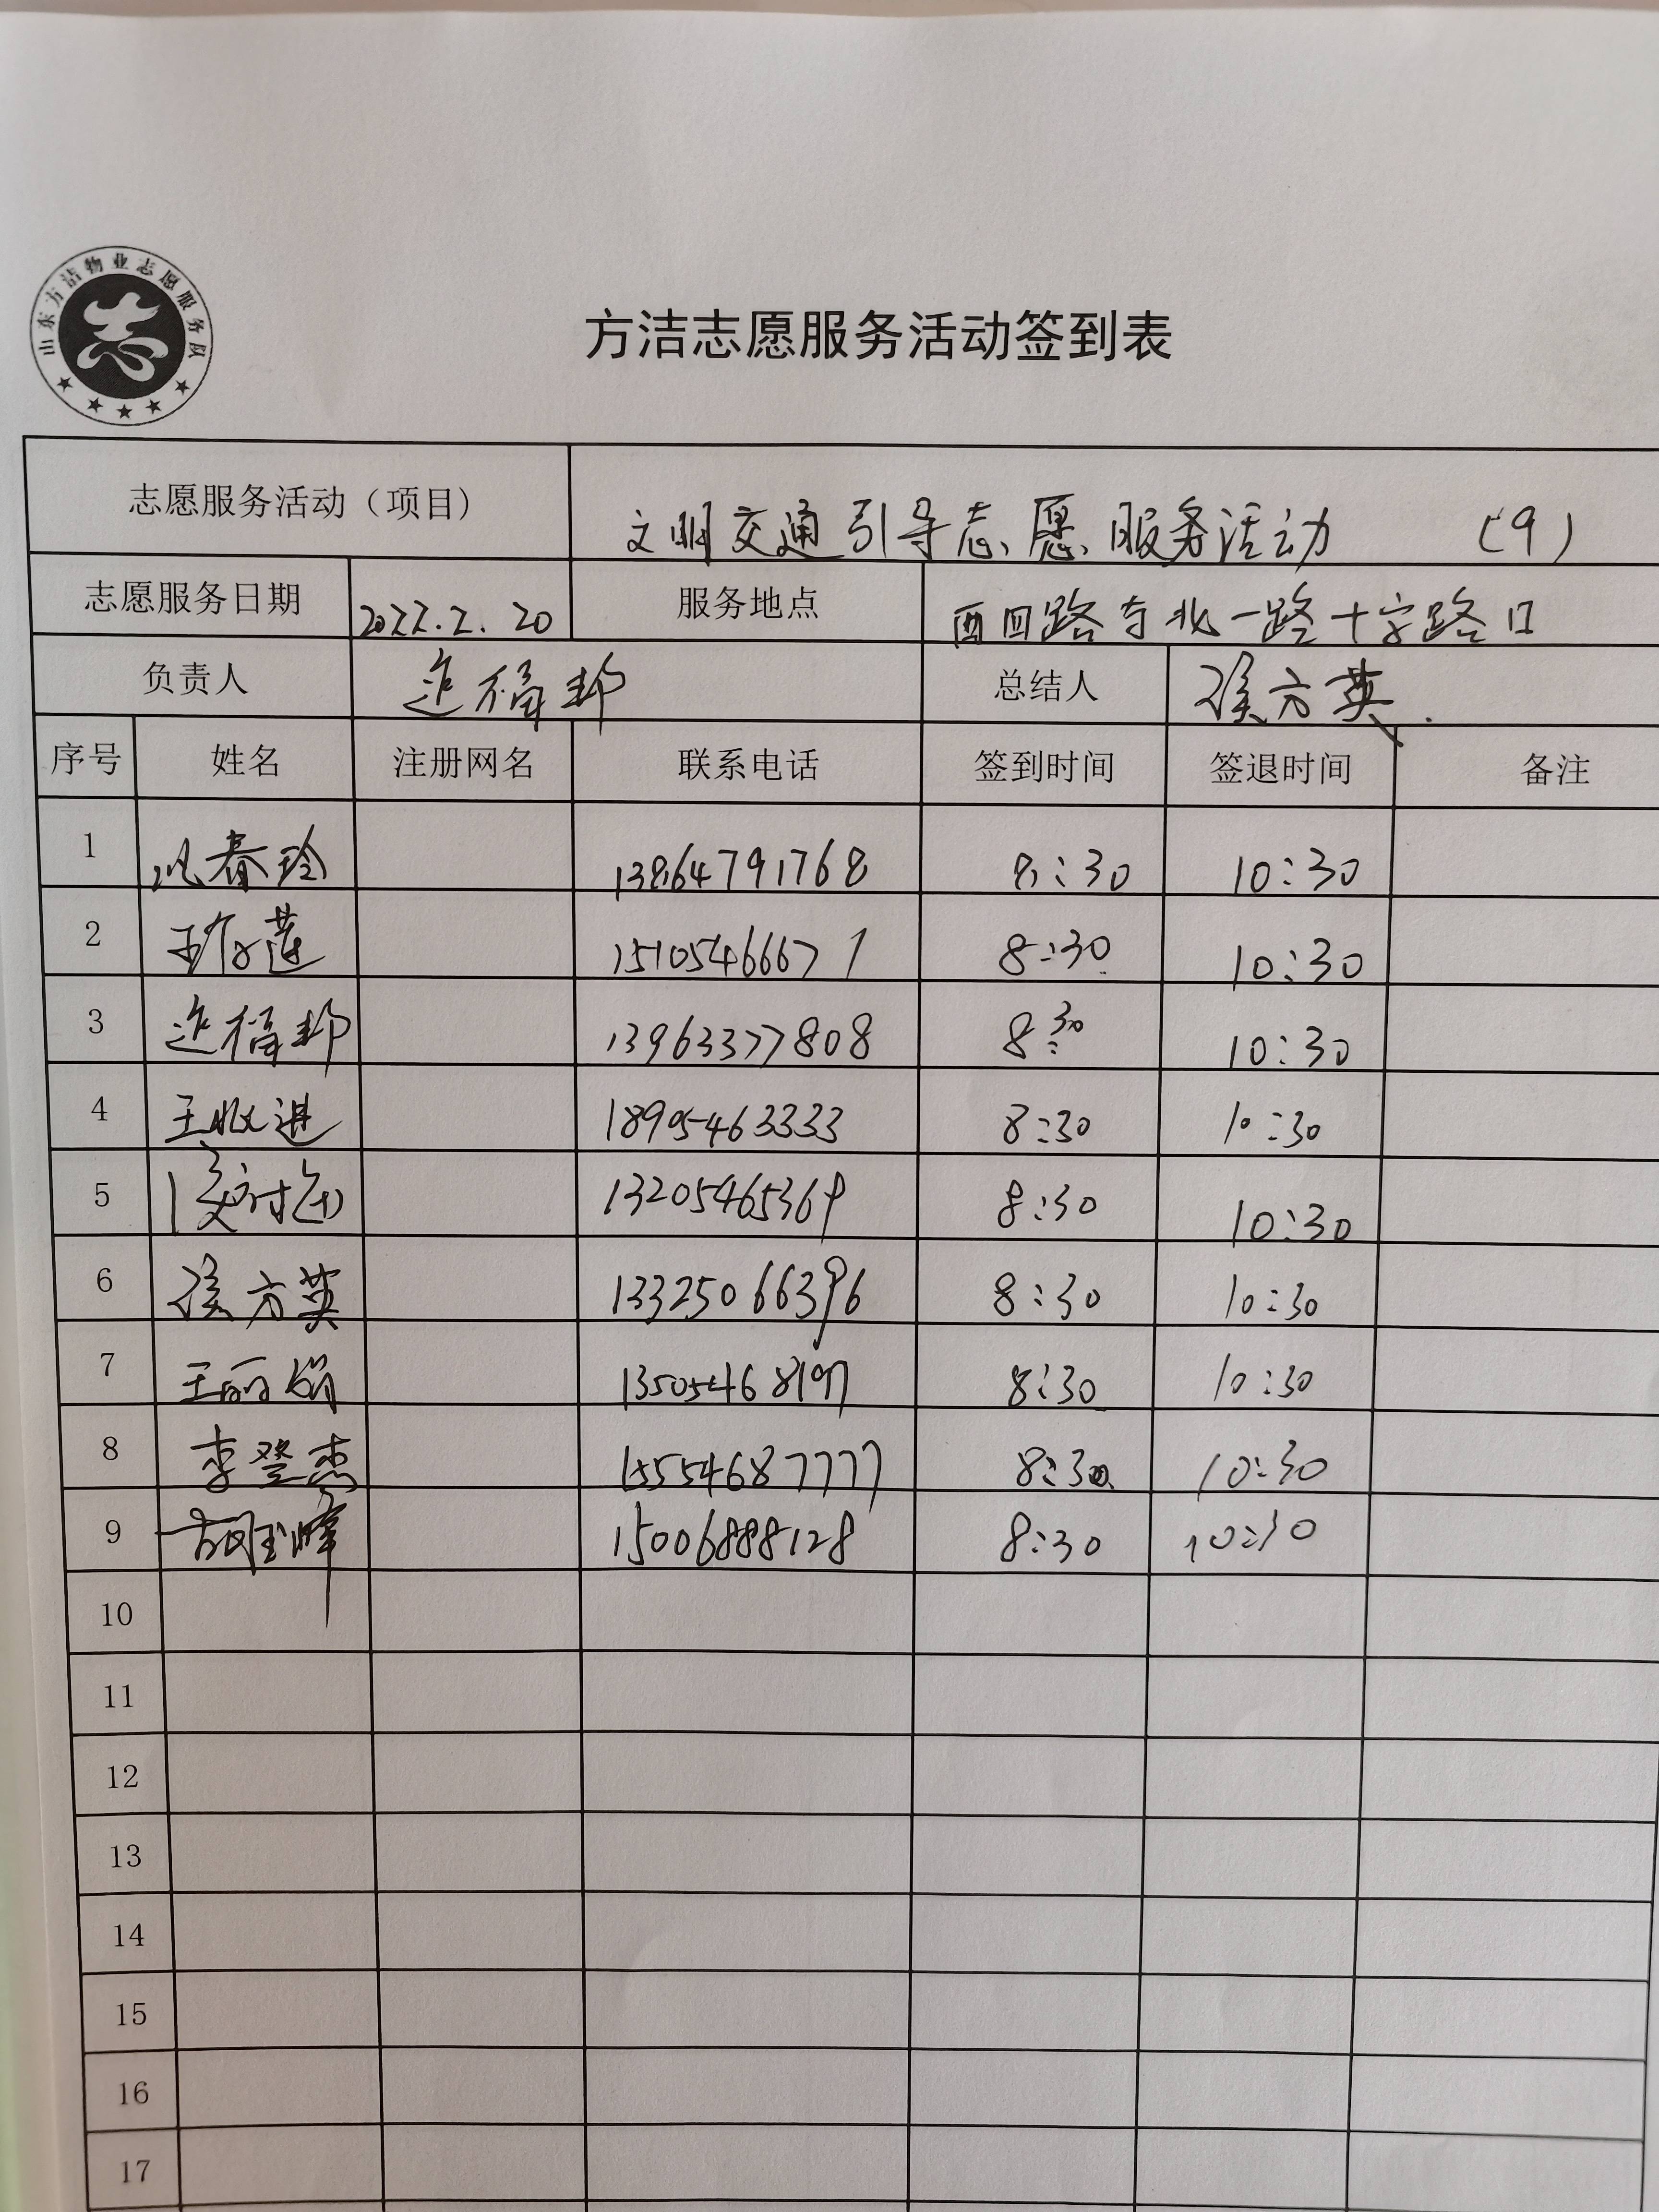 山东方洁物业志愿服务队
方洁志愿服务活动签到表
志愿服务活动（项目） 文明交通引导志愿服务活动 （9）
志愿服务日期 2022.2.20 服务地点 西四路与北一路十字路口
负责人 福邦 总结人 方英
序号 姓名 注册网名 联系电话 签到时间 签退时间 备注
1 春玲 13864791768 8:30 10:30
2 王 莲 15105466671 8:30 10:30
3 福邦 13963377808 8:30 10:30
4 王 进 18905463333 8:30 10:30
5 13205465369 8:30 10:30
6 方英 13325066396 8:30 10:30
7 王丽娟 13505468197 8:30 10:30
8 李登杰 15554687777 8:30 10:30
9 胡玉峰 15006888128 8:30 10:30
10
11
12
13
14
15
16
17